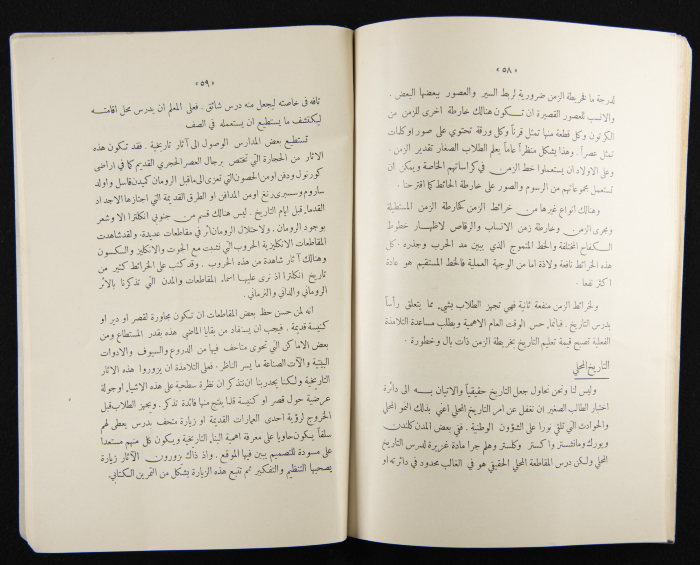 « ٥٨ »
لدرجة ما فخريطة الزمن ضرورية لربط السير والعصور ببعضها البعض .
والانسب للعصور القصيرة ان تكون هنالك خارطة اخرى للزمن من
الكرتون وكل قطعة منها تمثل قرناً وكل ورقة تحتوي على صور او كلمات
تمثل عصراً . وهذا يشكل منظراً عاماً يعلم الطلاب الصغار تقدير الزمن .
وعلى الاولاد ان يستعملوا خط الزمن في كراساتهم الخاصة ويمكن ان
تستعمل مجموعاتهم من الرسوم والصور على خارطة الحائط كما اقترحنا .
وهنالك أنواع غيرها من خرائط الزمن كخارطة الزمن المستطيلة
ومجرى الزمن وخارطة زمن الانساب والرقاص لاظهار خطوط
الكفاح المختلفة والخط المتموج الذي يبين مد الحرب وجذره . كل
هذه الخرائط نافعة ولاذة اما من الوجهة العملية فالخط المستقيم هو عادة
اكثر نفعا .
ولخرائط الزمن منفعة ثانية فهي تجهز الطلاب بشيء مما يتعلق رأساً
بدرس التاريخ . فبانماء حس الوقت العام الاهمية وبطلب مساعدة التلامذة
الفعلية تصبح قيمة تعليم التاريخ بخريطة الزمن ذات بال وخطورة .
التاريخ المحلي
وليس لنا ونحن نحاول جعل التاريخ حقيقياً والاتيان به الى دائرة
اختبار الطالب الصغير ان نغفل عن امر التاريخ المحلي اعني بذلك النمو المحلي
والحوادث التي تلقي نورا على الشؤون الوطنية . ففي بعض المدن كلندن
ويورك ومانشستر واكستر وكلستر وهلم جرا مادة غزيرة لدرس التاريخ
المحلي ولكن درس المقاطعة المحلي الحقيقي هو في الغالب محدود في دائرته او
« ٥٩ »
تافه في خاصته ليجعل منه درس شائق . فعلى المعلم ان يدرس محل اقامته
ليكتشف ما يستطيع ان يستعمله في الصف
تستطيع بعض المدارس الوصول الى آثار تاريخية . فقد تكون هذه
الاثار من الحجارة التي تختص برجال العصر الحجري القديم كما في اراضي
كورنول ودفن او من الحصون التي تعزى الى ما قبل الرومان كيدن كاسل واولد
ساروم وسسبري رنغ او من المدافن او الطرق القديمة التي اجتازها الاجداد
القدماء قبل ايام التاريخ . ليس هنالك قسم من جنوبي انكلترا الا وشعر
بوجود الرومان . ولاحتلال الرومان اثر في مقاطعات عديدة . ولقد شاهدت
المقاطعات الانكليزية الحروب التي نشبت مع الجوت والانكليز والسكسون
وهنالك آثار شاهدة من هذه الحروب . وقد كتب على الخرائط كثير من
تاريخ انكلترا اذ نرى عليها اسماء المقاطعات والمدن التي تذكرنا بالاثر
الروماني والداني والنرماني .
انه لمن حسن حظ بعض المقاطعات ان تكون مجاورة لقصر او دير او
كنيسة قديمة . فيجب ان يستفاد من بقايا الماضي هذه بقدر المستطاع ومن
بعض الاماكن التي تحوي متاحف فيها من الدروع والسيوف والادوات
البيتية والآت الصناعة ما يسر الناظر . فعلى التلامذة ان يزوروا هذه الاثار
التاريخية ولكنا يجدر بنا ان نتذكر ان نظرة سطحية على هذه الاشياء او جولة
عرضية حول قصر او كنيسة قلما ينتج منها فائدة تذكر . ويجهز الطلاب قبل
الخروج لرؤية احدى العمارات القديمة او زيارة متحف بدرس يعطى لهم
سلفاً يكون حاويا على معرفة اهمية البناء التاريخية ويكون كل منهم مستعدا
على مسودة للتصميم يبين فيها الموقع . واذ ذاك يزورون الآثار زيارة
يصحبها التنظيم والتفكير ثم تتبع هذه الزيارة بشكل من التمرين الكتابي .